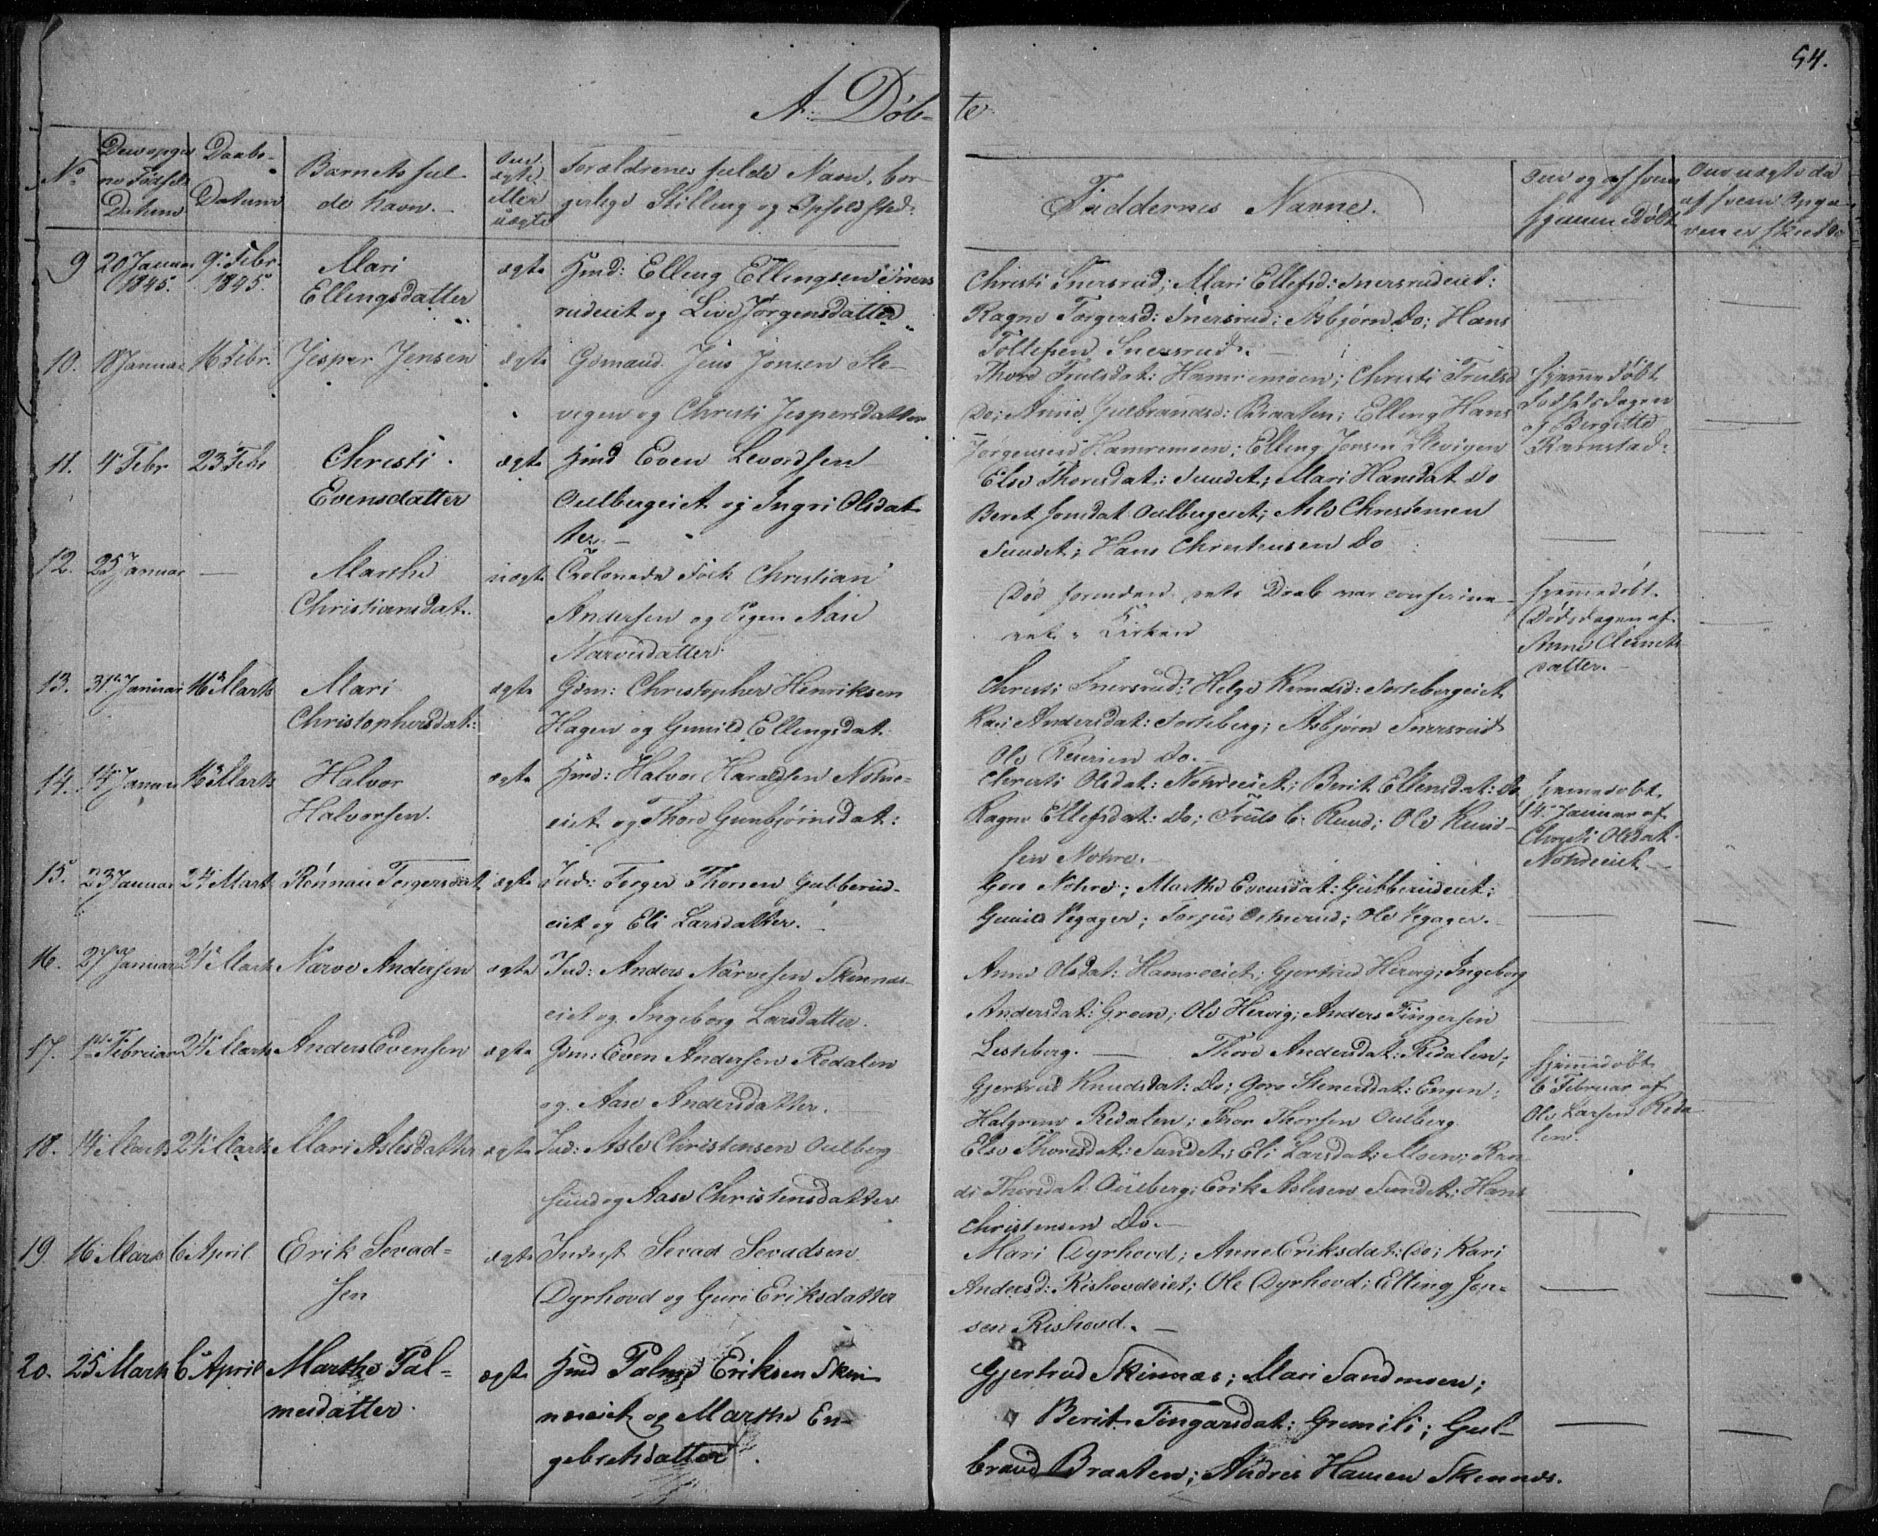 54.
A. Døb- te
No
Daabs-
Datum
Barnets ful-
de Navn.
ægte
eller
uægte
Forældrenes fulde Navn, bor-
gerlige Stilling og Opholdsted.
Faddernes Navne.
9 20 Januar 1845. 9 Febr. 1845. Mari
Ellingsdatter
ægte Hmd: Elling Ellingsen Sners
rudeiet og Live Jørgensdatter
Christi Snersrud; Mari Ellefsd: Snersrudeiet:
Ragne Torgersd: Snersrud; Asbjørn Do; Hans
Tollefsen Snersrud.
10. 18 Januar 16 Febr. Jesper Jensen ægte Gdmand Jens Jonsen Ste-
vigen og Christi Jespersdatter
Thore Trulsdat: Hamremoen; Christi Trulsd
Do; Anne Gulbrandsd: Braaten; Elling Hans
Jørgensen Hamremoen; Elling Jonsen Stevigen
hjemmedøbt
Fødselsdagen
af Bergitte
Ramstad.
11. 4 Febr 23 Febr Christi
Evensdatter
ægte Hmd Even Levordsen
Oulbergeiet og Ingri Olsdat
ter.
Else Thoresdat: Sundet; Mari Hansdat Do
Beret Jonsdat Oulbergeiet; Asle Christensen
Sundet; Hans Christensen Do
12. 25 Januar — Marthe
Christiansdat.
uægte Christian
Andersen og Pigen Aase
Narvesdatter
Død forinden dets Daab var
i Kirken
hjemmedøbt
Dødsdagen af
Anne Clemets
datter.
13. 31 Januar 16 Marts Mari
Christophersdat:
ægte Gdm: Christopher Henriksen
Hagen og Gunild Ellingsdat.
Christi Snersrud; Helge Knudsd: Sortebergeiet
Kari Andersdat: Sorteberg; Asbjørn Snersrud
Ole Do.
14. 14 Januar 16 Marts Halvor
Halvorsen.
ægte Hmd: Halvor Haraldsen Nohre-
eiet og Thore Gunbjørnsdat:
Christi Olsdat: Nohreeiet; Berit Ellensdat: Do
Ragne Ellefsdat: Do; Truls C. Ruud; Ole Knud-
sen Nohre.
hjemmedøbt
14 Januar af
Christi Olsdat
Nohreeiet
15. 23 Januar 24 Mart Rønnau Torgersdat ægte Ind: Torger Thorsen Gubberud-
eiet og Eli Larsdatter.
Goro Nohre; Marthe Evensdat: Gubberudeiet;
Gunild Vegager; Torjus Ole Vegager.
16. 27 Januar 24 Marts Narve Andersen ægte Ind: Anders Narvesen Skinnes-
eiet og Ingeborg Larsdatter.
Anne Olsdat: Hamreeiet; Gjertrud Hervig; Ingeborg
Andersdat: Groen; Ole Hervig; Anders Fingersen
Lesteberg.
17. 1 Februar 24 Marts Anders Evensen ægte Gdm: Even Andersen Redalen
og Aase Andersdatter.
Thore Andersdat: Redalen;
Gjertrud Knudsdat: Do; Goro Stenersdat: Engen;
Halgrim Redalen; Thor Thorsen Oulberg
hjemmedøbt
6 Februar af
Ole Larsen Reda
len.
18. 14 Marts 24 Marts Mari Aslesdatter ægte Ind: Asle Christensen Oulberg
sund og Aase Christensdatter
Else Thoresdat: Sundet; Eli Larsdat: Moen; Ran
di Thorsdat Oulberg; Erik Aslesen Sundet; Hans
Christensen Do.
19. 16 Marts 6 April Erik Sevad-
sen
ægte Inderst Sevad Sevadsen
Dyrhovd og Guri Eriksdatter
Mari Dyrhovd; Anne Eriksdat: Do; Kari
Andersd: Rishovdeiet; Ole Dyrhovd; Elling Jen-
sen Rishovd.
20. 25 Mart 6 April Marthe Pal-
mesdatter.
ægte Hmd Palme Eriksen Skin-
neseiet og Marthe En-
gebretsdatter.
Gjertrud Skinnæs; Mari Sandmoen;
Berit Fingarsdat: Gremili; Gul-
brand Braaten; Andres Hansen Skinnæs.